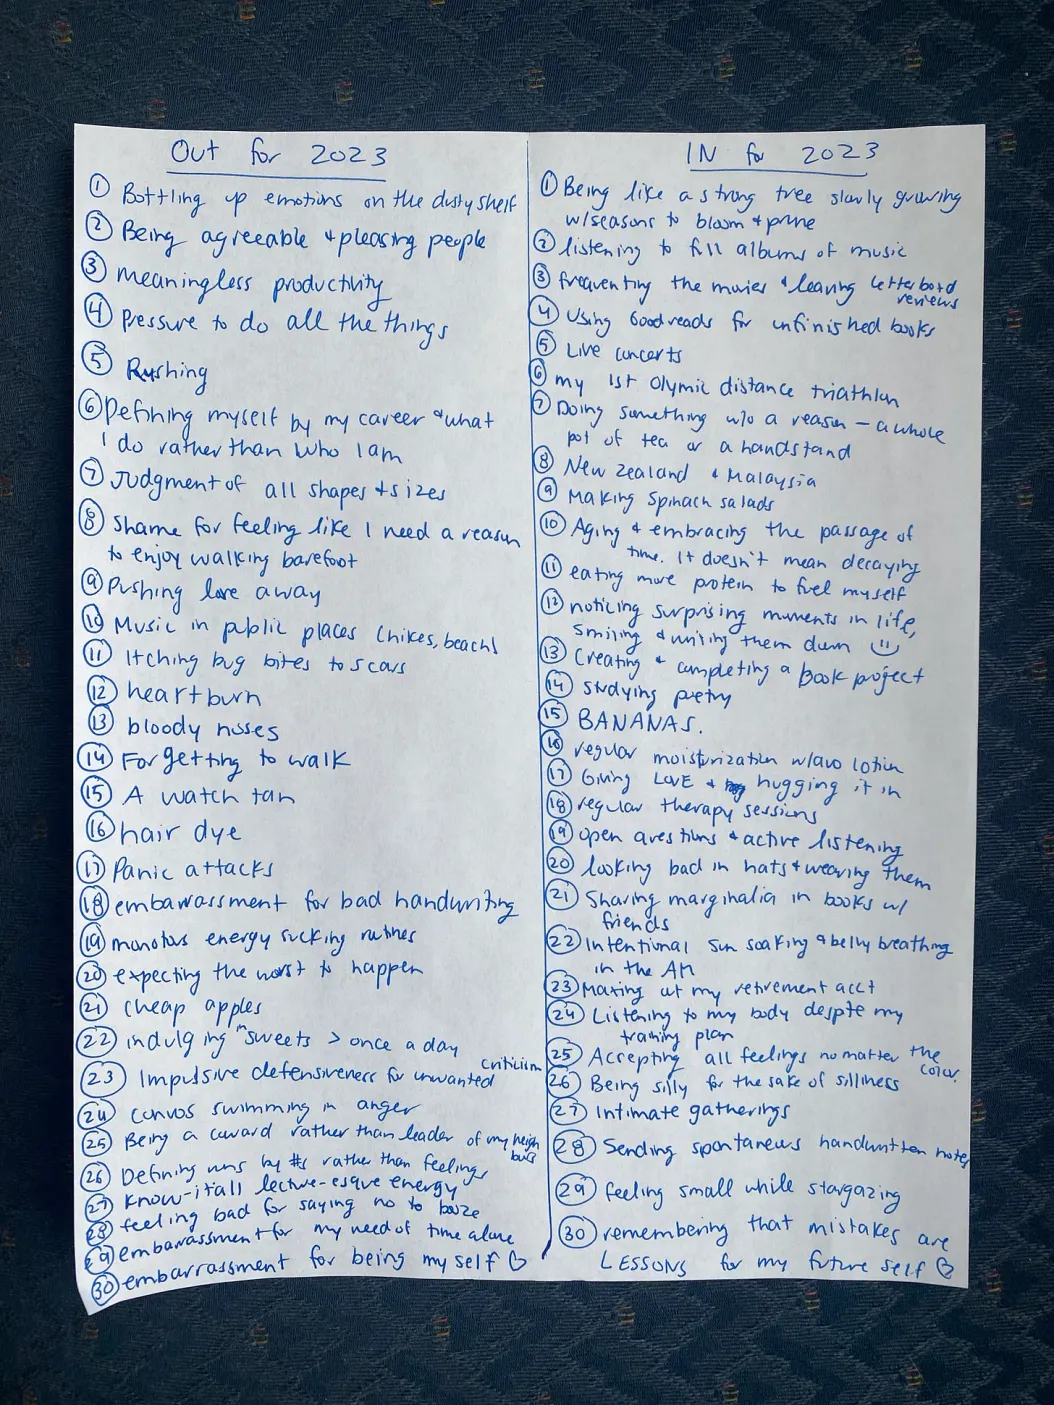 Out for 2023
① Bottling up emotions on the dusty shelf
② Being agreeable & pleasing people
③ meaningless productivity
④ pressure to do all the things
⑤ Rushing
⑥ Defining myself by my career & what
I do rather than who I am
⑦ Judgment of all shapes & sizes
⑧ Shame for feeling like I need a reason
to enjoy walking barefoot
⑨ Pushing love away
⑩ Music in public places (hikes, beach)
⑪ Itching bug bites to scars
⑫ heartburn
⑬ bloody noses
⑭ Forgetting to walk
⑮ A watch tan
⑯ hair dye
⑰ Panic attacks
⑱ embarrassment for bad handwriting
⑲ monotous energy sucking routines
⑳ expecting the worst to happen
㉑ cheap apples
㉒ indulging in sweets > once a day
㉓ Impulsive defensiveness for unwanted criticism
㉔ convos swimming in anger
㉕ Being a coward rather than leader of my neighbors
㉖ Defining runs by #s rather than feelings
㉗ know-it-all lecture-esque energy
㉘ feeling bad for saying no to booze
㉙ embarrassment for my need of time alone
㉚ embarrassment for being my self ♡
IN for 2023
① Being like a strong tree slowly growing
w/seasons to bloom & prune
② listening to full albums of music
③ frequenting the movies & leaving Letterboxd
reviews
④ Using Goodreads for unfinished books
⑤ Live concerts
⑥ my 1st Olymic distance triathlon
⑦ Doing something w/o a reason – a whole
pot of tea or a handstand
⑧ New Zealand & Malaysia
⑨ Making spinach salads
⑩ Aging & embracing the passage of
time. It doesn't mean decaying
⑪ eating more protein to fuel myself
⑫ noticing surprising moments in life,
smiling & writing them down
⑬ Creating & completing a book project
⑭ studying poetry
⑮ BANANAS.
⑯ regular moisturization w/avo lotion
⑰ Giving LOVE & hugging it in
⑱ regular therapy sessions
⑲ open questions & active listening
⑳ looking bad in hats & wearing them
㉑ Sharing marginalia in books w/
friends
㉒ Intentional sun soaking & belly breathing
in the AM
㉓ Maxing out my retirement acct
㉔ Listening to my body despte my
training plan
㉕ Accepting all feelings no matter the
color.
㉖ Being silly for the sake of silliness
㉗ Intimate gatherings
㉘ Sending spontaneous handwritten notes
㉙ feeling small while stargazing
㉚ remembering that mistakes are
LESSONS for my future self ♡